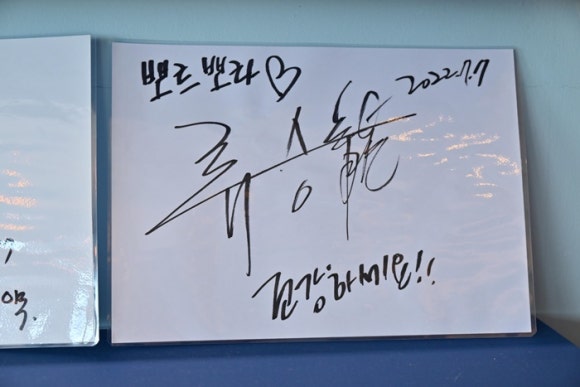 뽀르뽀라♡ 2022.7.7
류승龍
건강하세요!!